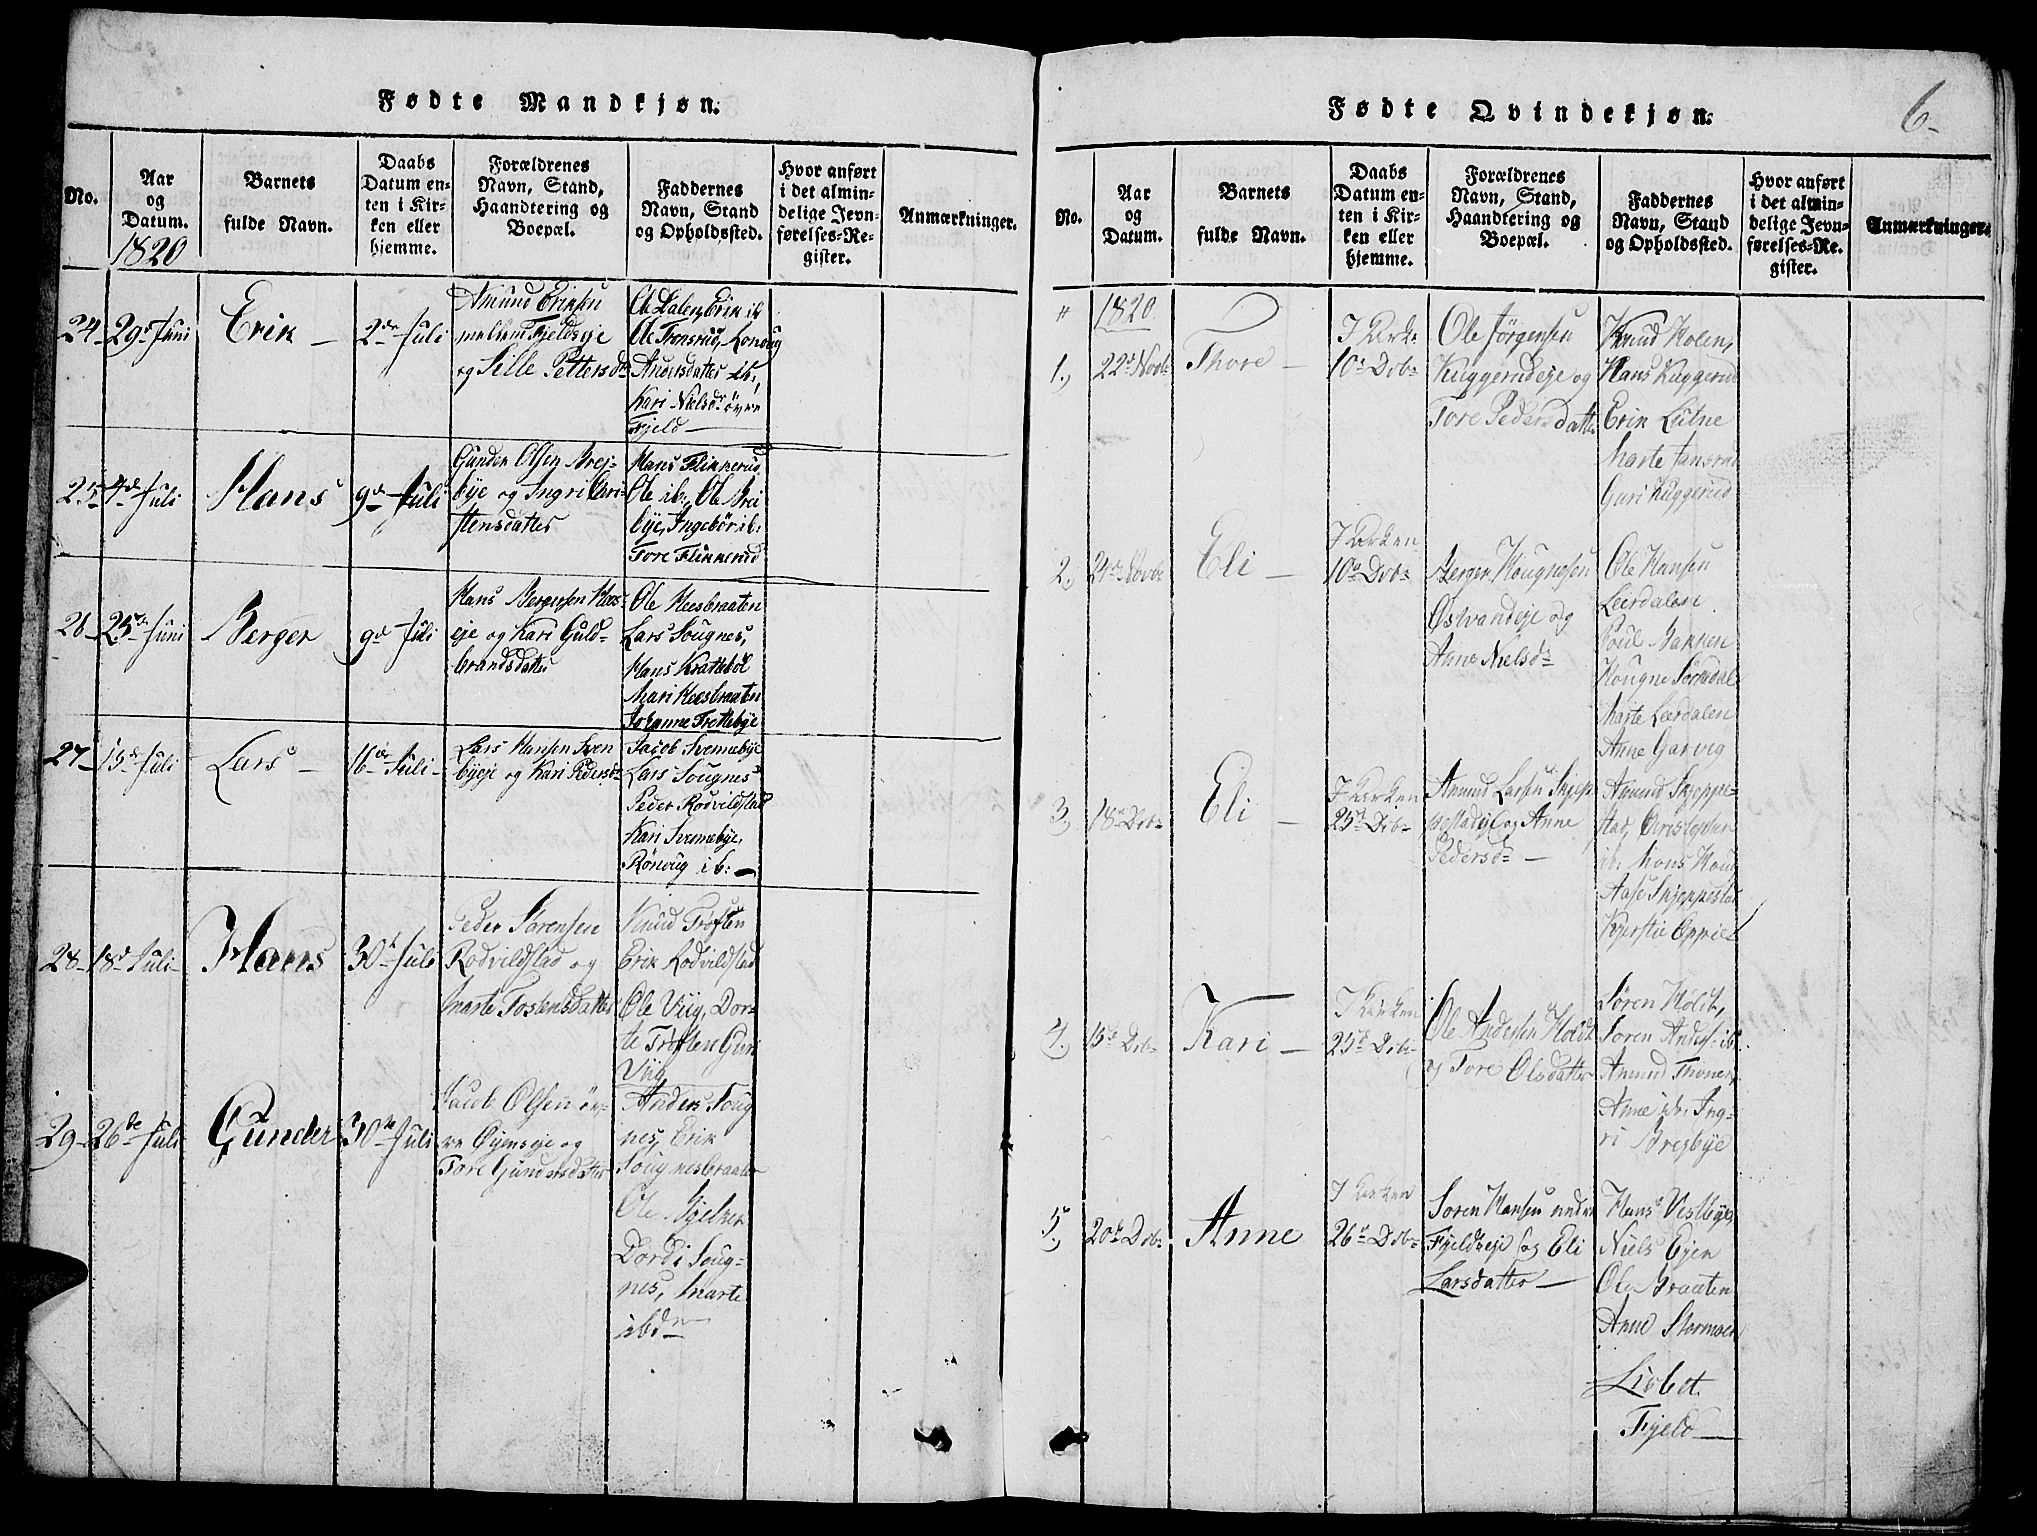 Fødte Mandkjøn.
No.
Aar
og
Datum.
1820
Barnets
fulde Navn.
Daabs
Datum en-
ten i Kir-
ken eller
hjemme.
Forældrenes
Navn, Stand,
Haandtering og
Boepæl.
Faddernes
Navn, Stand
og Opholdssted.
Hvor anført
i det almin-
delige Jevn-
førelses-Re-
gister.
Anmærkninger.
24
29d Juni
Erik
2den Juli
Amund Eriksen
mellem Fjeldseje
og Sille Pettersdr
Ole Dalen, Erik ib
Ole Fronsrud, Rondug
Andersdatter ib:,
Kari Nielsdr øvre
Fjeld
25
4de Juli
Hans
9de Juli
Gunder Olsen Brej-
bye og Ingri Chri-
stensdatter
Hans Flinnerud,
Ole ib:, Ole Brei
bye, Ingebør ib:
Tore Flinnerud
26
25de Juni
Berger
9de Juli
Hans Bergersen Hees-
eje og Kari Guld-
brandsdatter
Ole Heesbraaten
Lars Sougnes,
Hans Krattebøl
Mari Heesbraaten
Johanne Trettebye
27
15de Juli
Lars
16de Juli
Lars Hansen Sven
byeje og Kari Pedersdr
Jacob Svennebye
Lars Sougnes
Peder Rodvildstad
Kari Svennebye,
Rønnug ib:
28
18d Juli
Hans
30te Juli
Peder Sørensen
Rodvildstad og
Marte Tostensdatter
Knud Trøften
Erik Rodvildstad
Ole Viig, Dor-
te Trøften Guri
Viig
29
26de Juli
Gunder
30te Juli
Jacob Olsen øv-
re Øyenseje og
Tore Gundersdatter
Anders Soug
nes, Erik
Sougnesbraaten
Ole Bjelver
Dordi Soug-
nes, Marte
ibdn
Fødte Qvindekjøn.
6
No.
Aar
og
Datum.
Barnets
fulde Navn.
Daabs
Datum en-
ten i Kir-
ken eller
hjemme.
Forældrenes
Navn, Stand,
Haandtering og
Boepæl.
Faddernes
Navn, Stand
og Opholdssted.
Hvor anført
i det almin-
delige Jevn-
førelses-Re-
gister.
Anmærkninger.
"
1820
1.,
22d Novbr
Thore
I Kirk:
10de Dcbr
Ole Jørgensen
Kuggerudeje og
Tore Pedersdatter
Knud Holen,
Hans Kuggerud
Erik Lutne
Marte Jansrud
Guri Kuggerud
2.,
Novbr
Eli
I Kirken
10de Dcbr
Berger Hougnesen
Østvandeje og
Anne Nielsdr
Ole Hansen
Leerdalen
Poul Bakken
Hougne Sørkedal
Marte Leerdalen
Anne Garvig
3.,
18de Dcbr
Eli
I Kirken
25de Dcbr
Amund Larsen Skjep
pestadeje og Anne
Pedersdr
Amund Skjeppe-
stad, Christopher
ib: Mons Houg
Aase Skjeppestad
Kjerstie Oppie
4.,
15de Dcbr
Kari
I Kirken
25de Dcbr
Ole Andersen Holdt
og Tore Olsdatter
Søren Holdt,
Soren Anders: ib
Amund Thoner
Anne ib: Ing-
ri Brejbye
5.,
20de Dcbr
Anne
I Kirken
26de Dcbr
Soren Hansen nedre
Fjeldseje og Eli
Larsdatter
Hans Vestbye,
Niels Ejen
Ole Braaten
Anne Stormoen
Lisbet
Fjeld